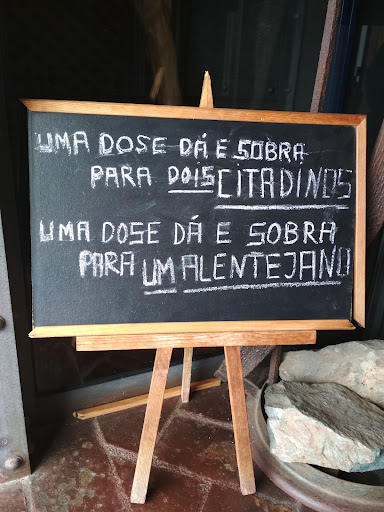 UMA DOSE DÁ E SOBRA
PARA DOIS CITADINOS
UMA DOSE DÁ E SOBRA
PARA UM ALENTEJANO